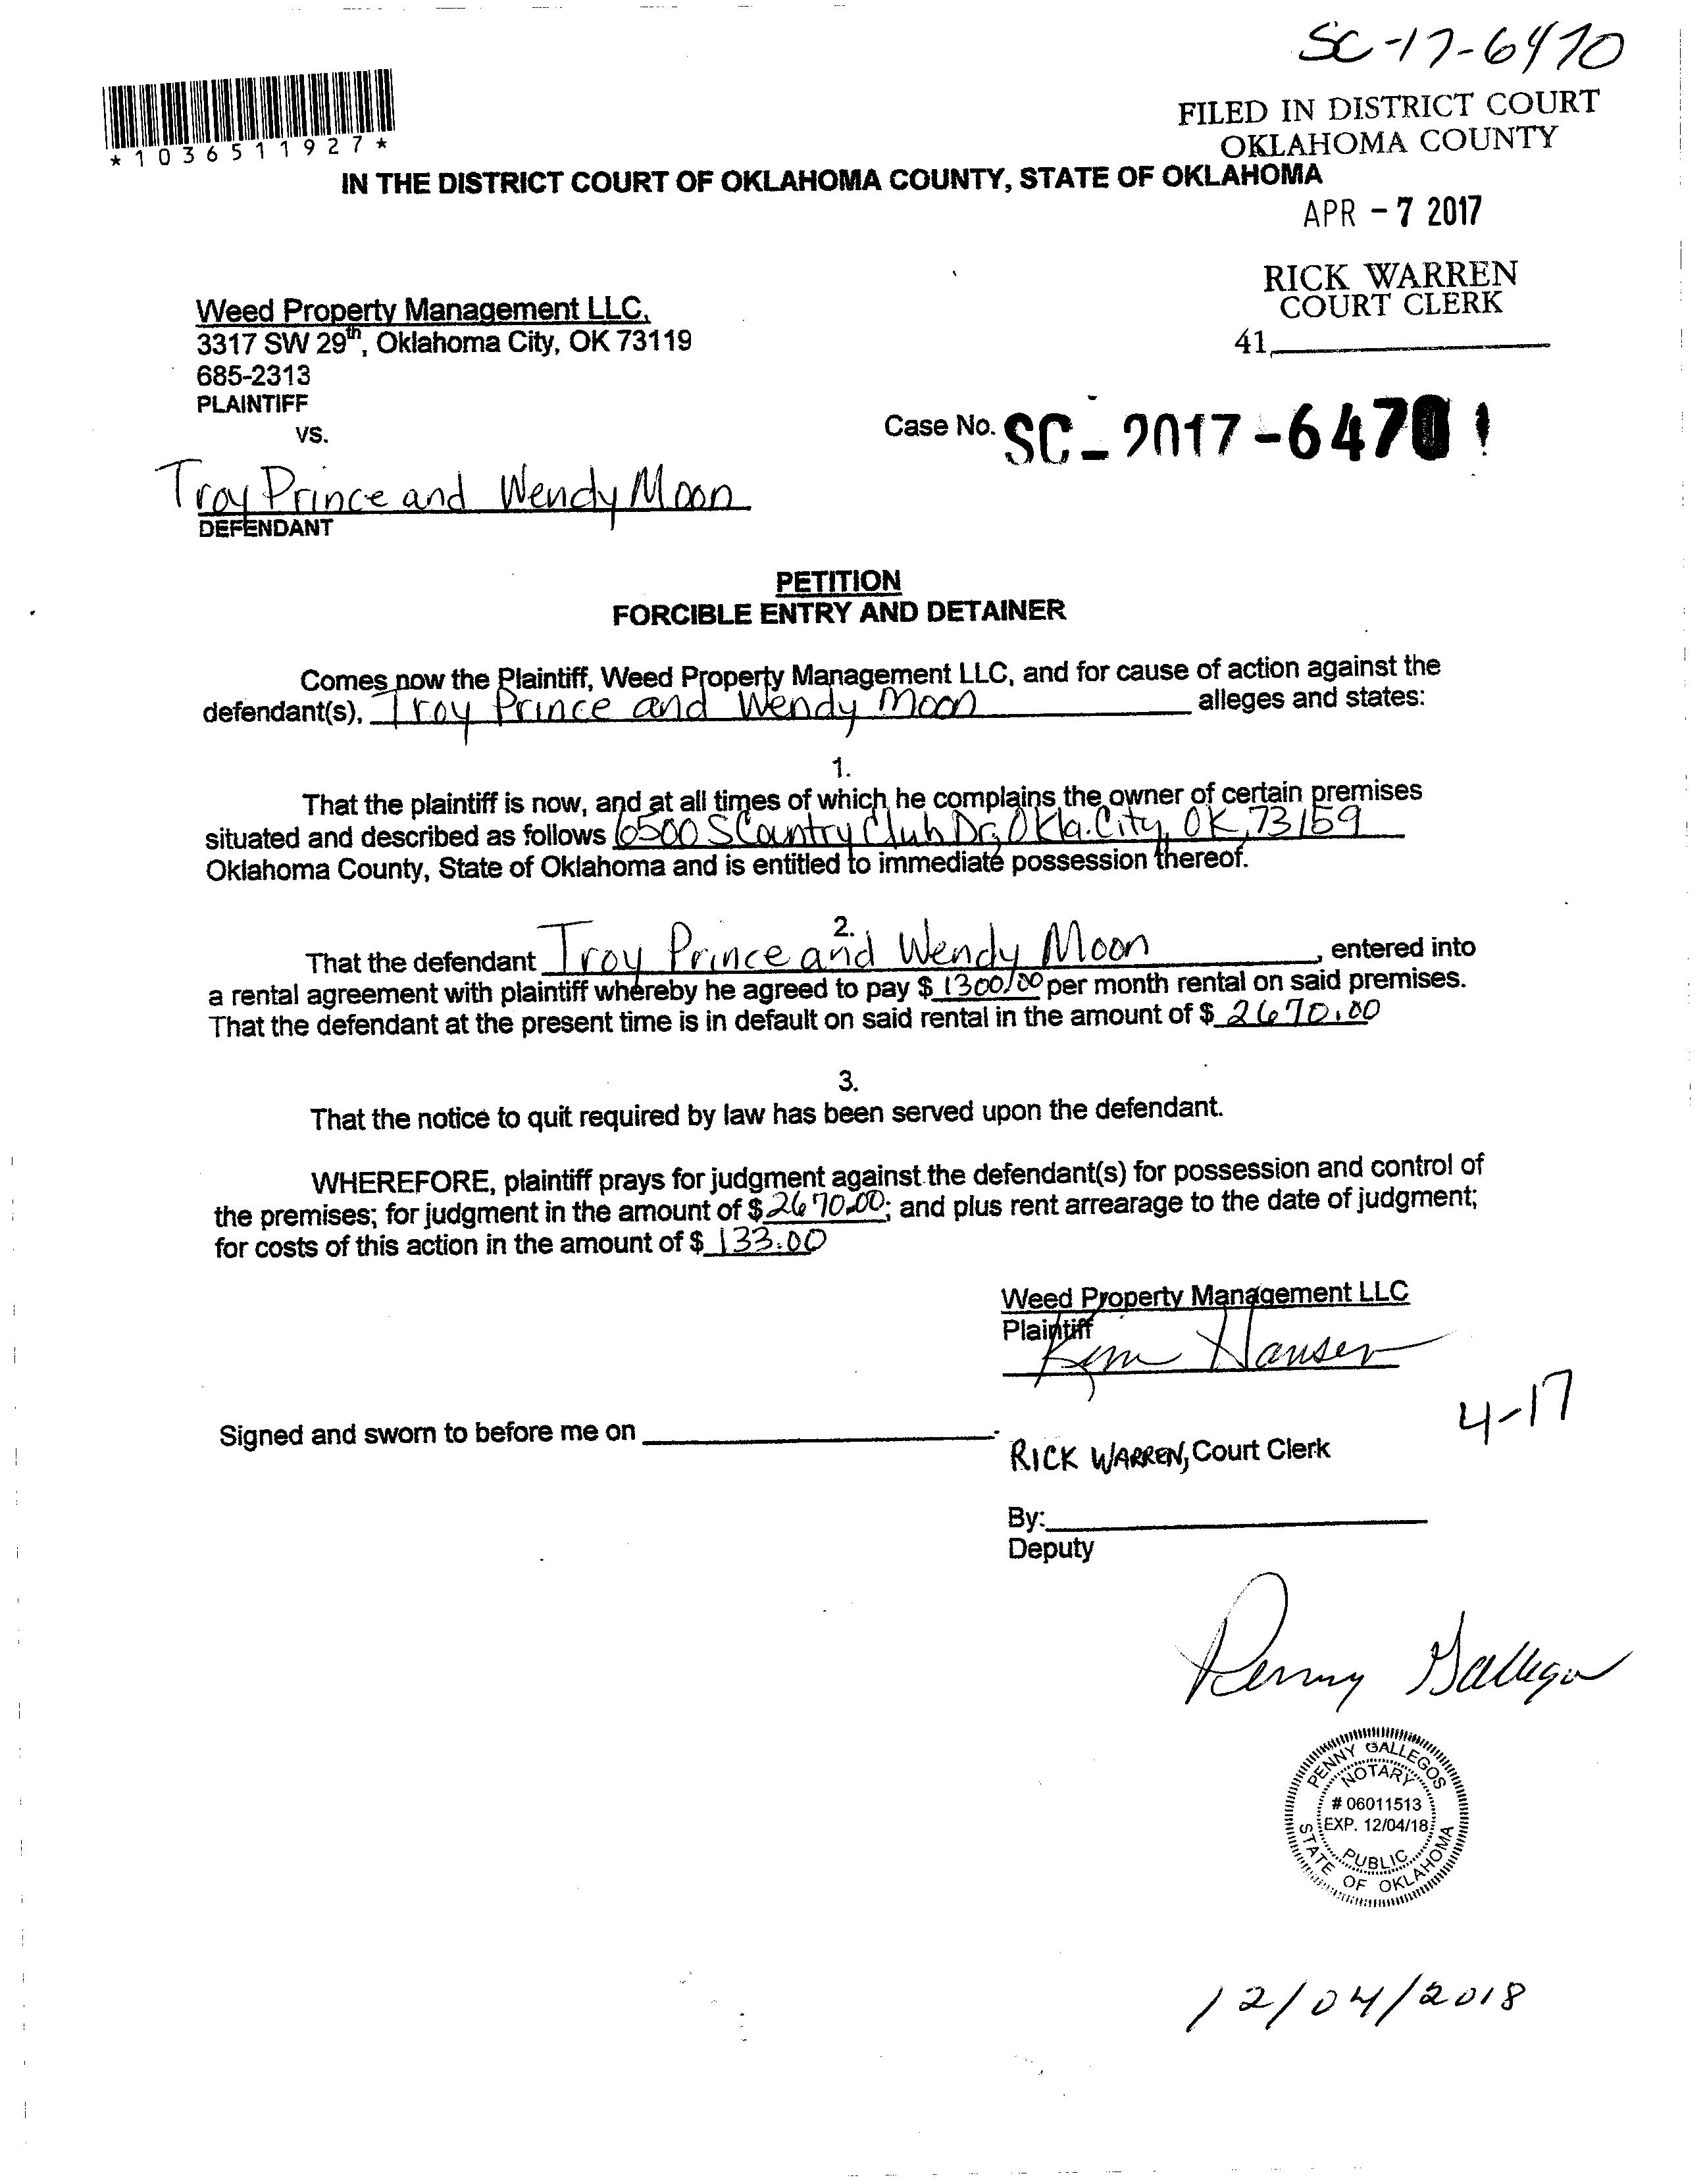 SC-17-6470
*1036511927*
FILED IN DISTRICT COURT
OKLAHOMA COUNTY
IN THE DISTRICT COURT OF OKLAHOMA COUNTY, STATE OF OKLAHOMA
APR - 7 2017
RICK WARREN
COURT CLERK
41
Weed Property Management LLC,
3317 SW 29th, Oklahoma City, OK 73119
685-2313
PLAINTIFF
vs.
Case No. SC - 2017 - 6470
Troy Prince and Wendy Moon
DEFENDANT
PETITION
FORCIBLE ENTRY AND DETAINER
Comes now the Plaintiff, Weed Property Management LLC, and for cause of action against the
defendant(s), Troy Prince and Wendy Moon alleges and states:
1.
That the plaintiff is now, and at all times of which he complains the owner of certain premises
situated and described as follows 6500 S Country Club Dr, Okla. City, OK, 73159
Oklahoma County, State of Oklahoma and is entitled to immediate possession thereof.
2.
That the defendant Troy Prince and Wendy Moon, entered into
a rental agreement with plaintiff whereby he agreed to pay $ 1300.00 per month rental on said premises.
That the defendant at the present time is in default on said rental in the amount of $ 2670.00
3.
That the notice to quit required by law has been served upon the defendant.
WHEREFORE, plaintiff prays for judgment against the defendant(s) for possession and control of
the premises; for judgment in the amount of $ 2670.00; and plus rent arrearage to the date of judgment;
for costs of this action in the amount of $ 133.00
Weed Property Management LLC
Plaintiff
Kim Hansen
4-17
Signed and sworn to before me on .
RICK WARREN, Court Clerk
By:
Deputy
Penny Gallegos
PENNY GALLEGOS
NOTARY
# 06011513
EXP. 12/04/18
PUBLIC
STATE OF OKLAHOMA
12/04/2018